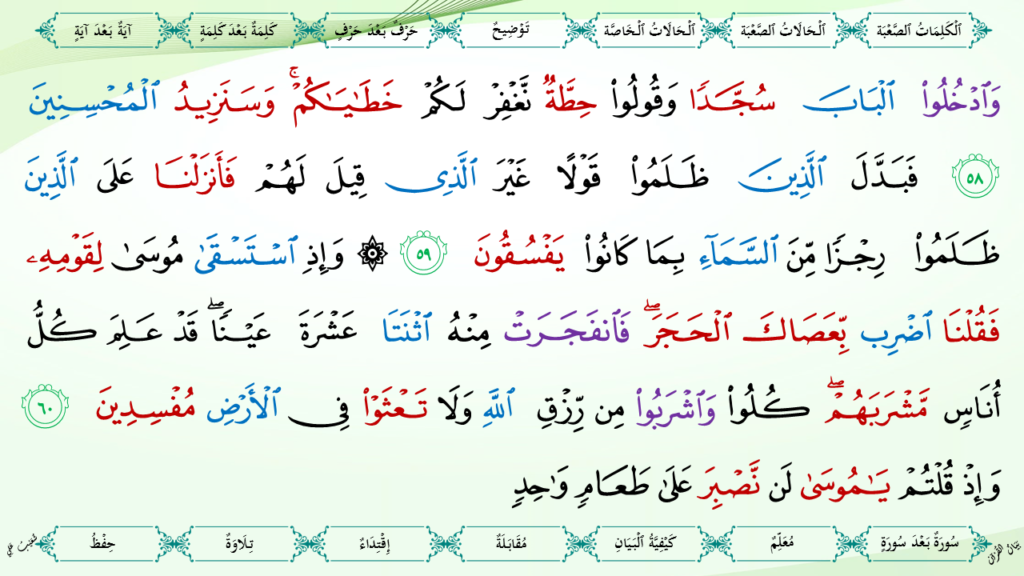 اَلْكَلِمَاتُ الصَّعْبَة اَلْحَالَاتُ الصَّعْبَة اَلْحَالَاتُ الْخَاصَّة تَوْضِيحٌ حَرْفٌ بَعْدَ حَرْفٍ كَلِمَةٌ بَعْدَ كَلِمَةٍ آيَةٌ بَعْدَ آيَةٍ
وَٱدْخُلُوا۟ ٱلْبَابَ سُجَّدًا وَقُولُوا۟ حِطَّةٌ نَّغْفِرْ لَكُمْ خَطَـٰيَـٰكُمْ ۚ وَسَنَزِيدُ ٱلْمُحْسِنِينَ
٥٨ فَبَدَّلَ ٱلَّذِينَ ظَلَمُوا۟ قَوْلًا غَيْرَ ٱلَّذِى قِيلَ لَهُمْ فَأَنزَلْنَا عَلَى ٱلَّذِينَ
ظَلَمُوا۟ رِجْزًا مِّنَ ٱلسَّمَآءِ بِمَا كَانُوا۟ يَفْسُقُونَ ٥٩ ۞ وَإِذِ ٱسْتَسْقَىٰ مُوسَىٰ لِقَوْمِهِۦ
فَقُلْنَا ٱضْرِب بِّعَصَاكَ ٱلْحَجَرَ ۖ فَٱنفَجَرَتْ مِنْهُ ٱثْنَتَا عَشْرَةَ عَيْنًا ۖ قَدْ عَلِمَ كُلُّ
أُنَاسٍ مَّشْرَبَهُمْ ۖ كُلُوا۟ وَٱشْرَبُوا۟ مِن رِّزْقِ ٱللَّهِ وَلَا تَعْثَوْا۟ فِى ٱلْأَرْضِ مُفْسِدِينَ ٦٠
وَإِذْ قُلْتُمْ يَـٰمُوسَىٰ لَن نَّصْبِرَ عَلَىٰ طَعَامٍ وَٰحِدٍ
سُورَةٌ بَعْدَ سُورَةٍ مُعَلِّمٌ كَيْفِيَّةُ الْبَيَانِ مُقَابَلَةٌ إِقْتِدَاءٌ تِلَاوَةٌ حِفْظٌ